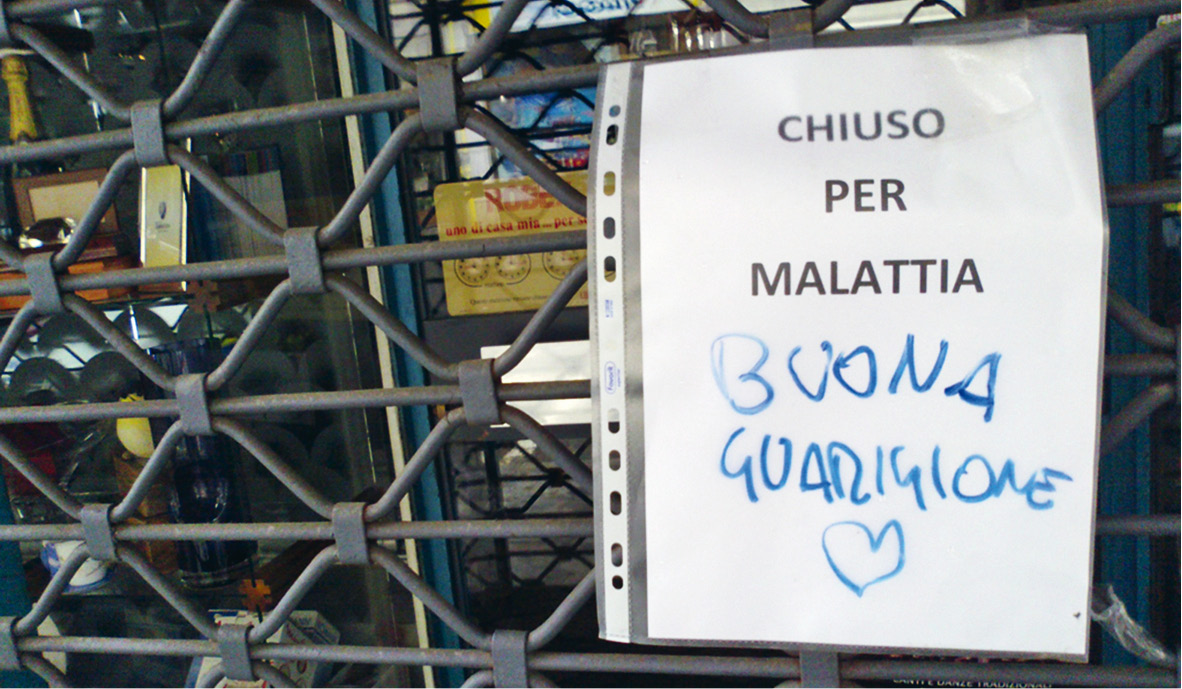 CHIUSO
PER
MALATTIA
BUONA
GUARIGIONE
uno di casa mia...per
CANTI E DANZE TRADIZIONALI